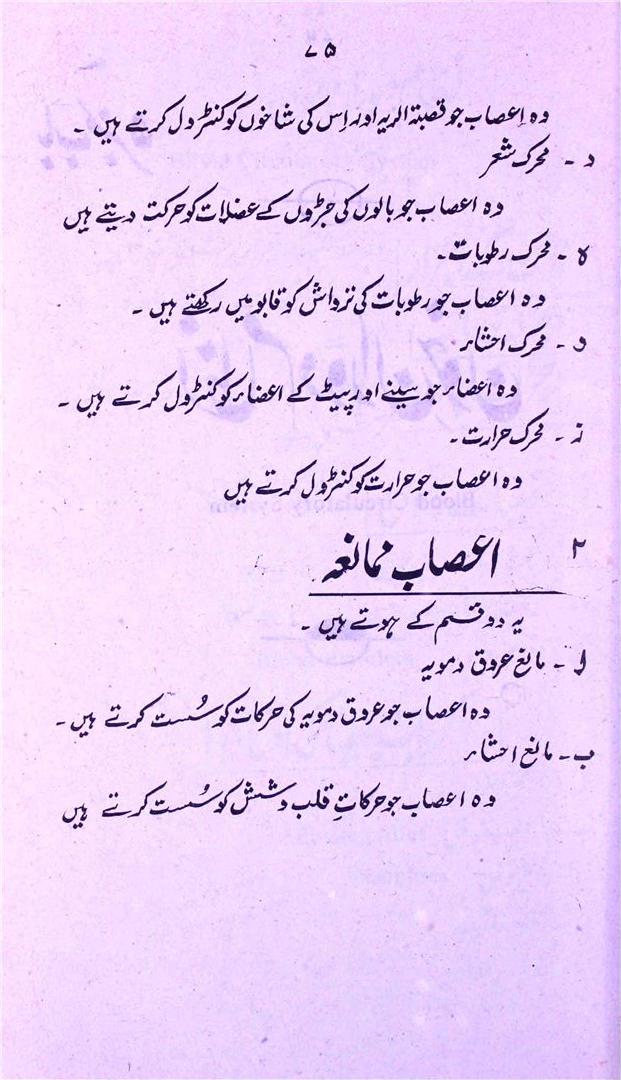 ۷۵
وہ اعصاب جو قصبۃ الریہ اور اِس کی شاخوں کو کنٹرول کرتے ہیں ۔
د ۔ محرک شعر
وہ اعصاب جو بالوں کی جڑوں کے عضلات کو حرکت دیتے ہیں
ہ ۔ محرک رطوبات ۔
وہ اعصاب جو رطوبات کی تراوش کو قابو میں رکھتے ہیں ۔
و ۔ محرک احشاء
وہ اعضاء جو سینے اور پیٹ کے اعضاء کو کنٹرول کرتے ہیں ۔
ز ۔ محرک حرارت ۔
وہ اعصاب جو حرارت کو کنٹرول کرتے ہیں
۲ اعصاب ممانعہ
یہ دو قسم کے ہوتے ہیں ۔
ا ۔ مانع عروق دمویہ
وہ اعصاب جو عروق دمویہ کی حرکات کو سُست کرتے ہیں ۔
ب ۔ مانع احشاء
وہ اعصاب جو حرکاتِ قلب و شش کو سُست کرتے ہیں